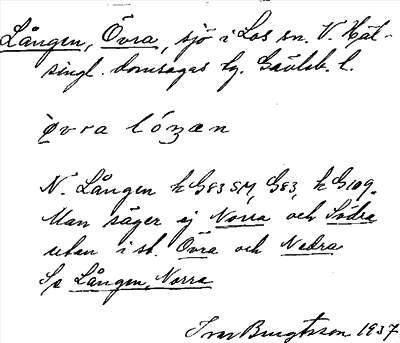 Lången, Övra, sjö i Los sn. V. Häl-
singl. domsagas tg. Gävleb. l.
övra lóŋan
N. Lången k G83 SM, G83, k G109.
Man säger ej Norra och Södra
utan i st. Övra och Nedra
Se Lången, Norra
Ivar Bengtsson 1937.